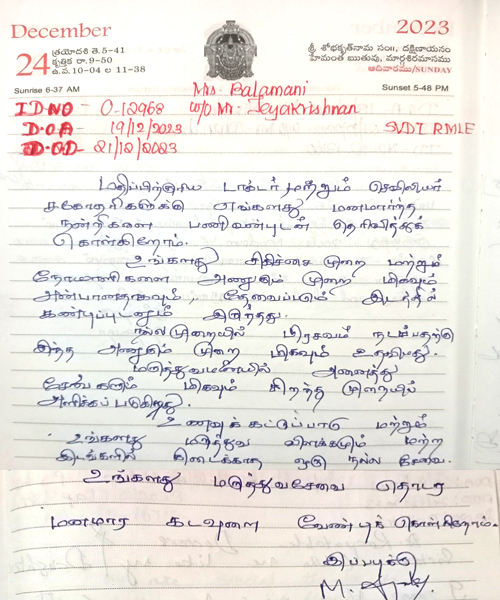 December 2023
24 త్రయోదశి తె.5-41
కృత్తిక రా.9-50
ఉ.వ.10-04 ల 11-38
శ్రీ శోభకృత్‌నామ సం॥, దక్షిణాయనం
హేమంత ఋతువు, మార్గశిరమాసము
ఆదివారము/SUNDAY
Sunrise 6-37 AM
Sunset 5-48 PM
Mrs Balamani
ID NO - 0-12968 W/O Mr. Jeyakrishnan
D.O.A - 19/12/2023 SVDT RMLE
D.O.D - 21/12/2023
மதிப்பிற்குரிய டாக்டர் மற்றும் செவிலியர்
சகோதரிகளுக்கு எங்களது மனமார்ந்த
நன்றிகளை பணிவன்புடன் தெரிவித்துக்
கொள்கிறோம்.
உங்களது சிகிச்சை முறை மற்றும்
நோயாளிகளை அணுகும் முறை மிகவும்
அன்பானதாகவும், தேவைப்படும் இடத்தில்
கண்டிப்புடனும் இருந்தது.
நல்லமுறையில் பிரசவம் நடப்பதற்கு
இந்த அணுகும் முறை மிகவும் உதவியது.
மருத்துவமனையில் அனைத்து
சேவைகளும் மிகவும் சிறந்த முறையில்
அளிக்கப்படுகிறது.
உணவுக்கட்டுப்பாடு மற்றும்
உங்களது மருத்துவ விளக்கமும் மற்ற
இடங்களில் கிடைக்காத ஒரு நல்ல சேவை.
உங்களது மருத்துவசேவை தொடர
மனமார கடவுளை வேண்டிக் கொள்கிறோம்.
இப்படிக்கு